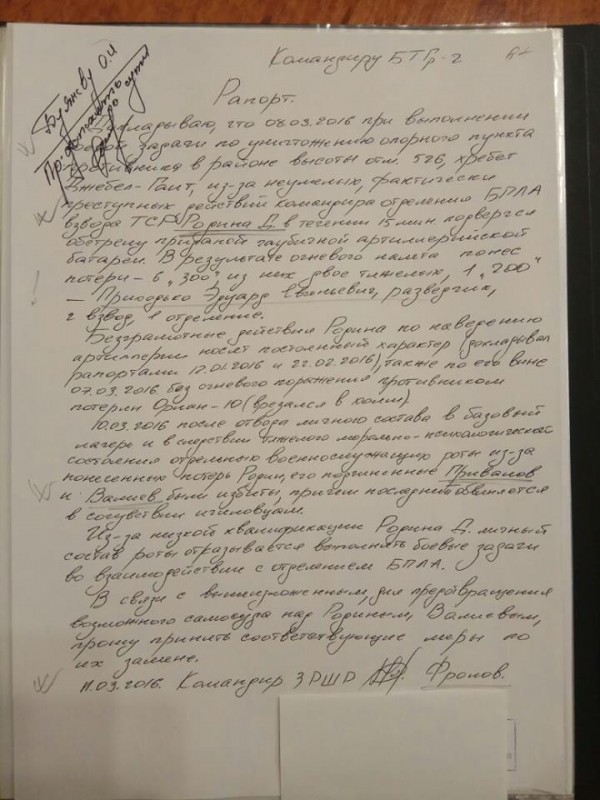 Командиру БТГр-2
Буянову О.И
Рапорт.
Докладываю, что 08.03.2016 при выполнении
задачи по уничтожению опорного пункта
противника в районе высоты отм. 526, хребет
Джебел-Гант, из-за неумелых, фактически
преступных действий командира отделения БПЛА
взвода ТСР Родина Д. в течении 15 мин. подвергся
обстрелу приданой гаубичной артиллерийской
батареи. В результате огневого налета понес
потери – 6 „300", из них двое тяжелых, 1 „200"
– Приходько Эдуард Евгеньевич, разведчик,
2 взвод, 1 отделение.
Безграмотные действия Родина по наведению
артиллерии носят постоянный характер (докладывал
рапортами 17.01.2016 и 22.02.2016), также по его вине
07.03.2016 без огневого поражения противником
потерян Орлан-10 (врезался в холм)
10.03.2016 после отвода личного состава в базовый
лагерь и в следствии тяжелого морально-психологического
состояния отдельных военнослужащих роты из-за
понесенных потерь Родин, его подчиненные Приванов
и Валиев были избиты, причем последний обвиняется
в сочувствии игиловцам.
Из-за низкой квалификации Родина Д. личный
состав роты отказывается выполнять боевые задачи
во взаимодействии с отделением БПЛА.
В связи с вышеизложенным, для предотвращения
возможного самосуда над Родиным, Валиевым,
прошу принять соответствующие меры по
их замене.
11.03.2016. Командир 3 РШР Фролов.